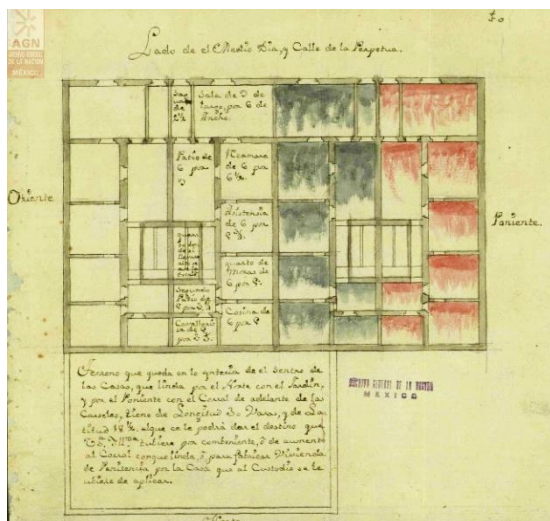 AGN
ARCHIVO GENERAL
DE LA NACIÓN
MÉXICO
Lado de el Medio Dia, y Calle de la Perpetua.
Sala de 9 de
largo, por 6 de
Ancho.
Patio de
6 por
Recamara
de 6 por
6 ½.
Oriente
Poniente
Asistencia
de 6 por
quarto de
Mozas de
6 por
Segundo
Patio de
Cosina de
6 por
Cavalleri
Terreno que queda en lo ynterio de el Sentro de
las Casas, que linda por el Norte con el Jardin,
y por el Poniente con el Corral de adelante de las
Carseles, tiene de Longitud 30 Varas, y de La
titud 18 ½. el que se le podrá dar el destino que
tubiere por combeniente, ó de aumento
al Corral conque linda, ó para fabricar Vivienda
de Penitencia por la Casa que al Custodio se le
ubiere de aplicar.
ARCHIVO GENERAL DE LA NACION
MEXICO